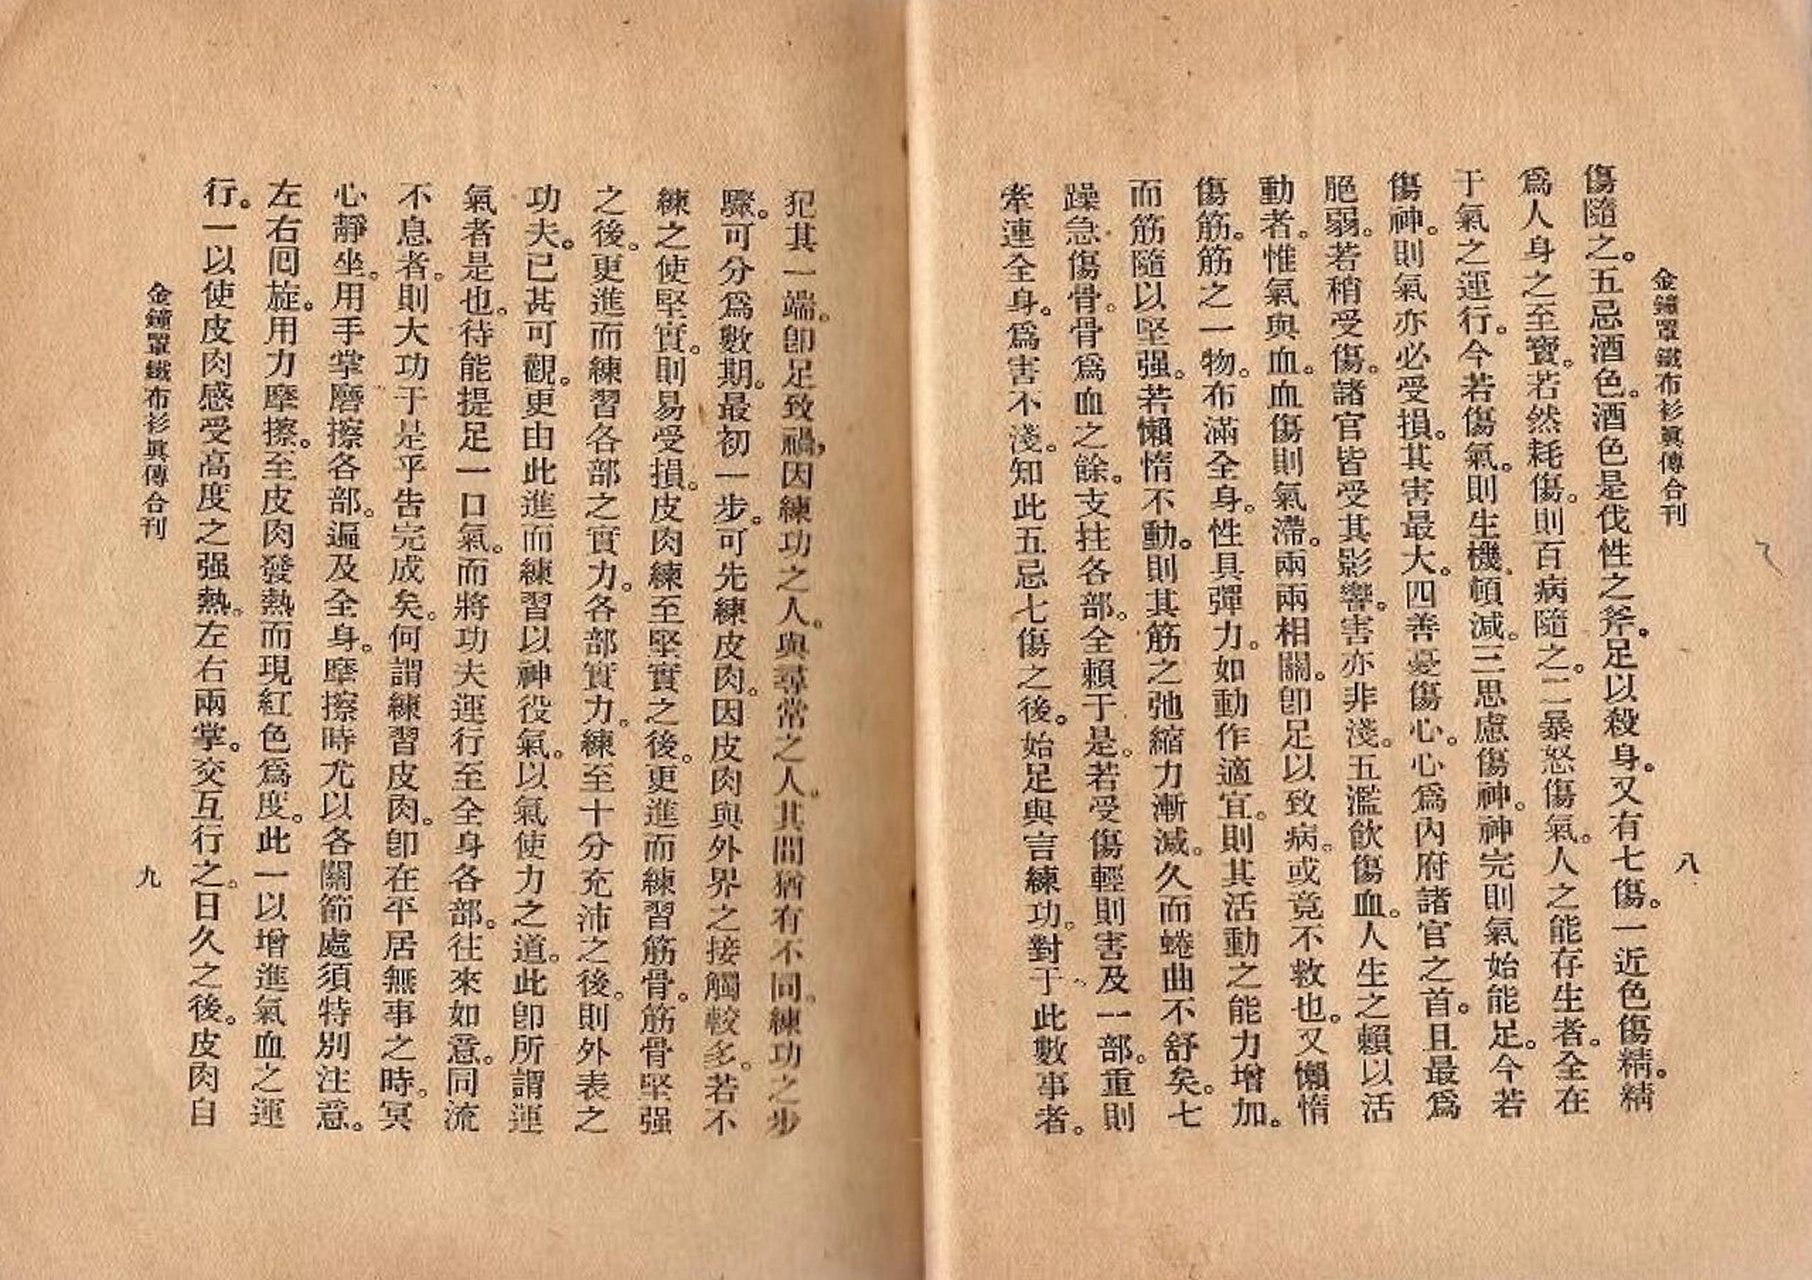 金鐘罩鐵布衫眞傳合刊
八
傷隨之。五忌酒色。酒色是伐性之斧。足以殺身。又有七傷。一近色傷精。精
爲人身之至寶。若然耗傷。則百病隨之。二暴怒傷氣。人之能存生者。全在
于氣之運行。今若傷氣。則生機頓減。三思慮傷神。神完則氣始能足。今若
傷神。則氣亦必受損。其害最大。四善憂傷心。心爲內府諸官之首。且最爲
脆弱。若稍受傷。諸官皆受其影響。害亦非淺。五濫飲傷血。人生之賴以活
動者。惟氣與血。血傷則氣滯。兩兩相關。卽足以致病。或竟不救也。又懶惰
傷筋。筋之一物。布滿全身。性具彈力。如動作適宜。則其活動之能力增加。
而筋隨以堅强。若懶惰不動。則其筋之弛縮力漸減。久而蜷曲不舒矣。七
躁急傷骨。骨爲血之餘。支拄各部。全賴于是。若受傷輕則害及一部。重則
牽連全身。爲害不淺。知此五忌七傷之後。始足與言練功。對于此數事者。
犯其一端。卽足致禍，因練功之人。與尋常之人。其間猶有不同。練功之步
驟。可分爲數期。最初一步。可先練皮肉。因皮肉與外界之接觸較多。若不
練之使堅實。則易受損。皮肉練至堅實之後。更進而練習筋骨。筋骨堅强
之後。更進而練習各部之實力。各部實力。練至十分充沛之後。則外表之
功夫。已甚可觀。更由此進而練習以神役氣。以氣使力之道。此卽所謂運
氣者是也。待能提足一口氣。而將功夫運行至全身各部。往來如意。同流
不息者。則大功于是乎告完成矣。何謂練習皮肉。卽在平居無事之時。冥
心靜坐。用手掌磨擦各部。遍及全身。摩擦時尤以各關節處須特別注意。
左右囘旋。用力摩擦。至皮肉發熱而現紅色爲度。此一以增進氣血之運
行。一以使皮肉感受高度之强熱。左右兩掌。交互行之。日久之後。皮肉自
金鐘罩鐵布衫眞傳合刊
九